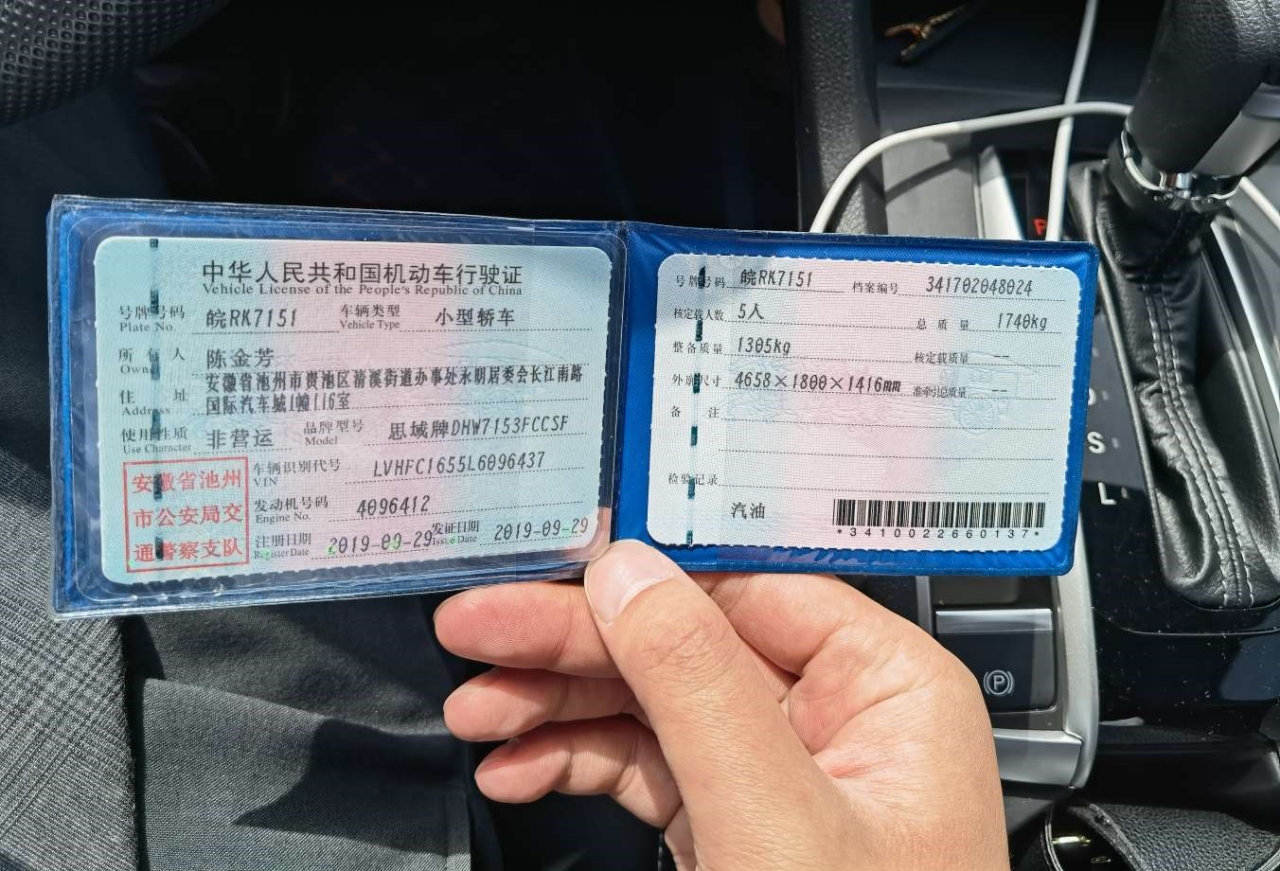 中华人民共和国机动车行驶证
Vehicle License of the People's Republic of China
号牌号码 皖RK7151 车辆类型 小型轿车
Plate No. Vehicle Type
所有人 陈金芳
Owner
住址 安徽省池州市贵池区清溪街道办事处永明居委会长江南路
Address 国际汽车城1幢116室
使用性质 非营运 品牌型号 思域牌DHW7153FCCSF
Use Character Model
安徽省池州
市公安局交
通警察支队
车辆识别代号 LVHFC1655L6096437
VIN
发动机号码 4096412
Engine No.
注册日期 2019-09-29 发证日期 2019-09-29
Register Date Issue Date
号牌号码 皖RK7151 档案编号 341702048024
核定载人数 5人 总质量 1740kg
整备质量 1305kg 核定载质量 --
外廓尺寸 4658×1800×1416mm 准牵引总质量 --
备注
检验记录
汽油
*3410022660137*
P
S
L
P